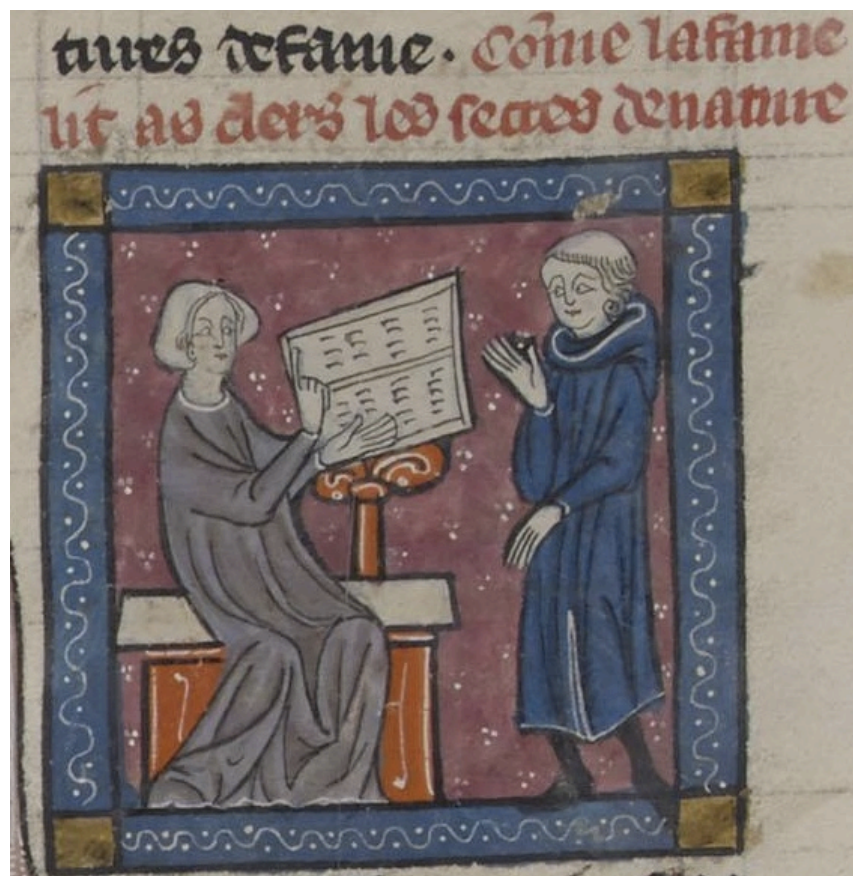 tures de fame · Cõme la fame
lit as clers les secres de nature